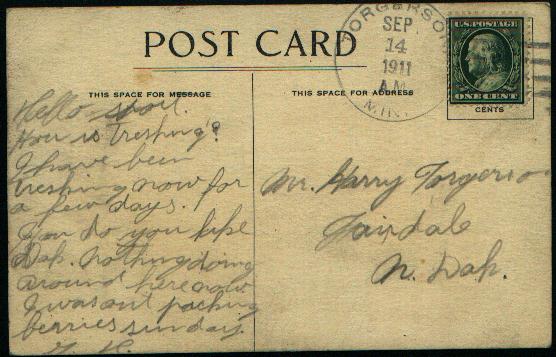 POST CARD
THIS SPACE FOR MESSAGE
THIS SPACE FOR ADDRESS
TORGERSON
SEP
14
1911
A.M.
MIN.
U.S. POSTAGE
ONE CENT
CENTS
Hello
How is treshing?
I have been
treshing now for
a few days.
you do you like
Dak. nothing doing
around here now
I was out packing
berries sunday.
Mr. Harry Torgerson
Fairdale
N. Dak.